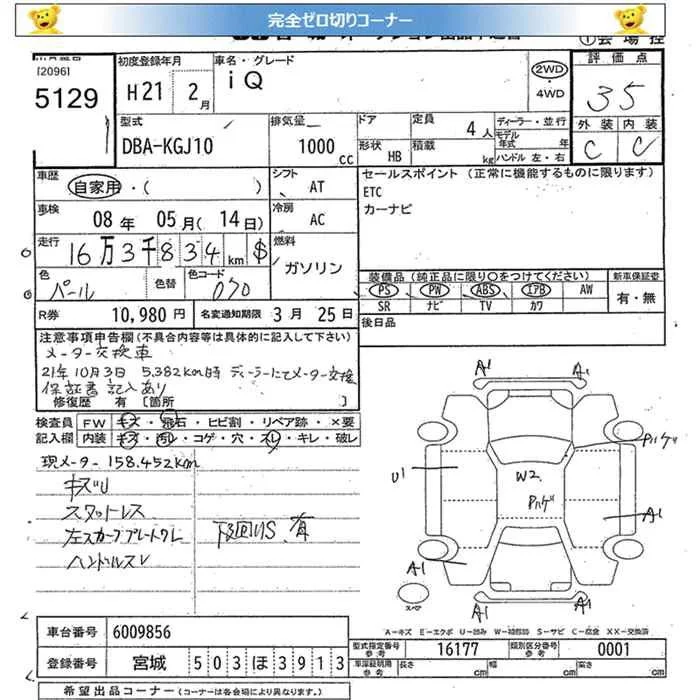 完全ゼロ切りコーナー
[2096]
5129
初度登録年月
H21 2月
車名・グレード
iQ
2WD
・4WD
評価点
3.5
外装 内装
C C
型式
DBA-KGJ10
排気量
1000cc
ドア
形状 HB
定員 4人
積載 kg
ディーラー・並行
モデル年式 年
ハンドル 左・右
車歴
自家用・( )
シフト AT
セールスポイント (正常に機能するものに限ります)
ETC
カーナビ
車検
08年 05月(14日)
冷房 AC
走行
16万3千834km $
燃料
ガソリン
色
パール
色替
色コード
070
装備品(純正品に限り○をつけてください)
新車保証書
PS PW ABS エアB AW
SR ナビ TV カワ
有・無
R券 10,980円
名変通知期限 3月 25日
後日品
注意事項申告欄(不具合内容等は具体的に記入して下さい)
メーター交換車
21年10月3日 5,382km時 ディーラーにてメーター交換
保証書記入あり
修復歴 有 [箇所
検査員記入欄
FW キズ・飛石・ヒビ割・リペア跡・×要
内装 キズ・汚レ・コゲ・穴・スレ・キレ・破レ
現メーター 158.452km
キズU
スタットレス
左スカーフプレートワレ
ハンドルスレ
下回りS 有
A1 A1
Pハゲ
U1
W2
Pハゲ
A1
A1
A1 A1
スペア
A-キズ E-エクボ U-凹み W-補修跡 S-サビ C-腐食 XX-交換済
車台番号 6009856
型式指定番号 参考 16177
類別区分番号 参考 0001
登録番号 宮城 503ほ3913
車庫証明用 参考 長さ cm 幅 cm 高さ cm
希望出品コーナー(コーナーは各会場により異なります。)